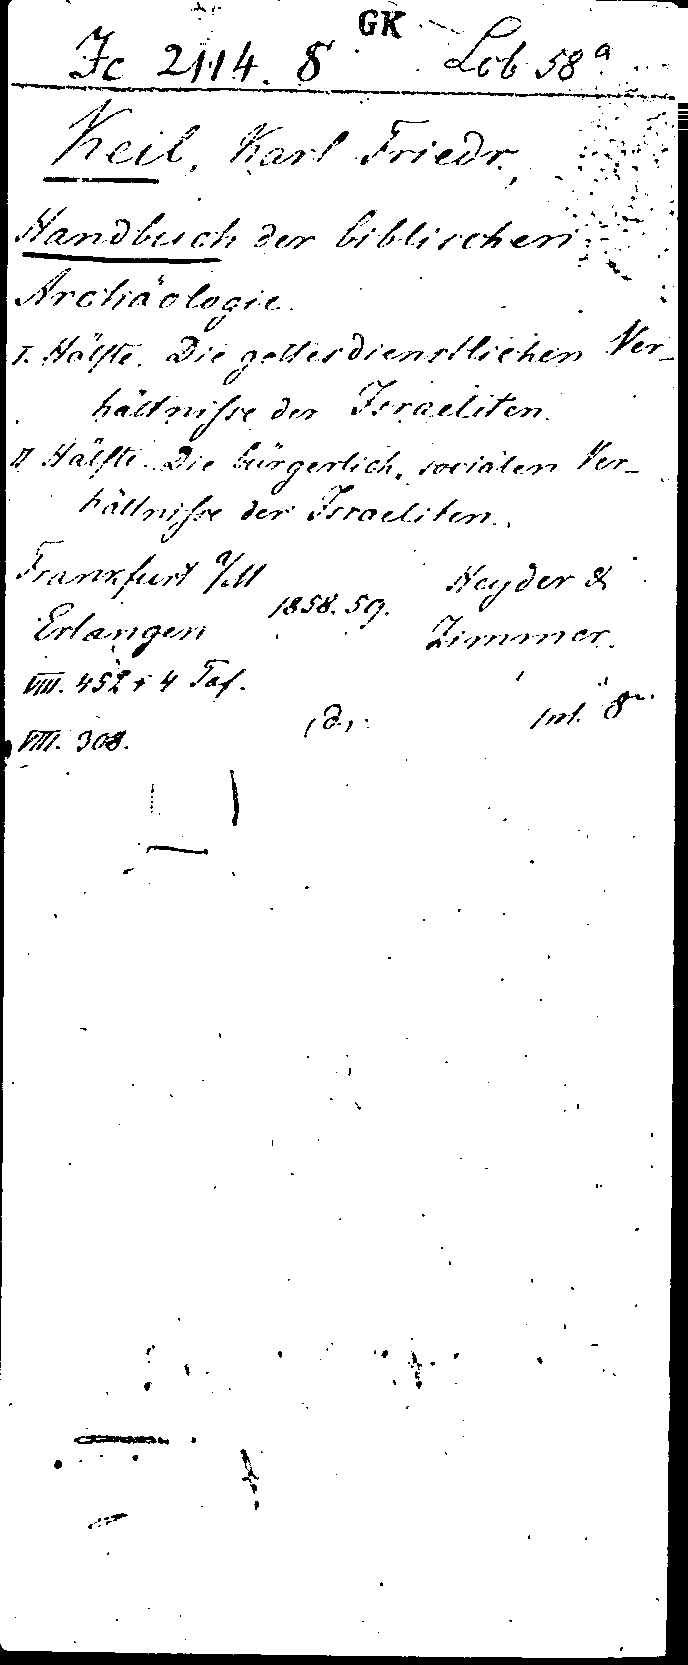 GK
Jc 2114. 8 Lob 58a
Keil, Karl Friedr.,
Handbuch der biblischen
Archäologie.
I. Hälfte. Die gottesdienstlichen Ver-
hältnisse der Israeliten.
II Hälfte. Die bürgerlich, socialen Ver-
hältnisse der Israeliten.
Frankfurt a/M Heyder &
Erlangen 1858. 59. Zimmer.
VIII. 452 + 4 Taf.
VIII. 308. 8